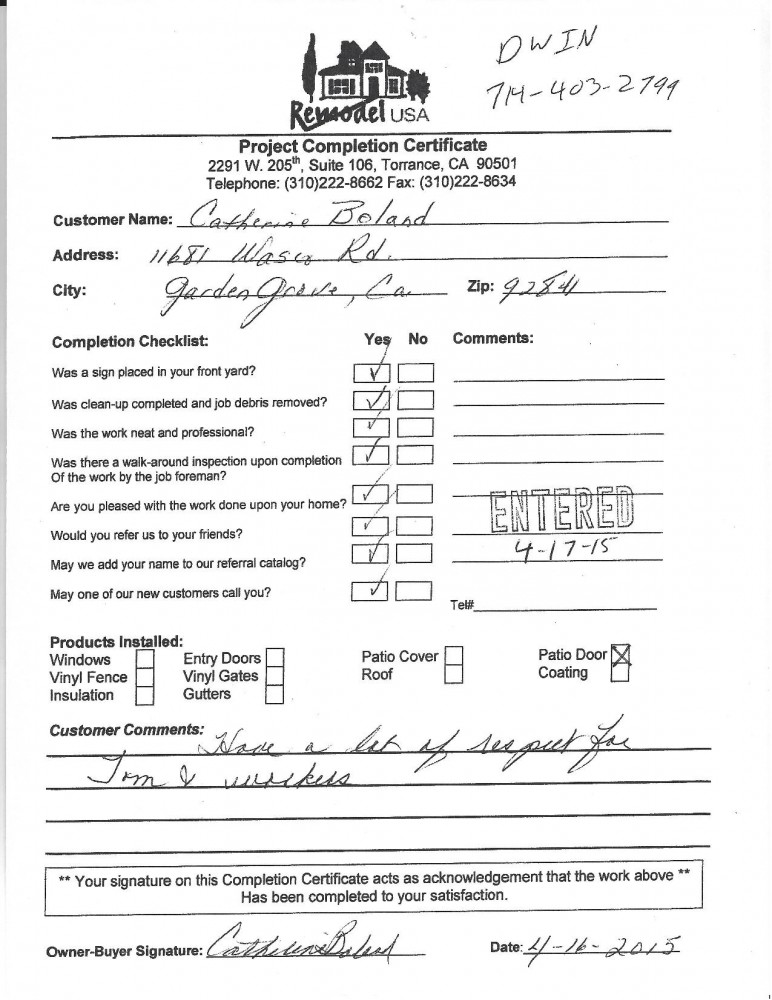 DWIN
714-403-2799
Remodel USA
Project Completion Certificate
2291 W. 205th, Suite 106, Torrance, CA 90501
Telephone: (310)222-8662 Fax: (310)222-8634
Customer Name: Catherine Boland
Address: 11681 Wasco Rd.
City: Garden Grove, Ca Zip: 92841
Completion Checklist: Yes No Comments:
Was a sign placed in your front yard?
Was clean-up completed and job debris removed?
Was the work neat and professional?
Was there a walk-around inspection upon completion
Of the work by the job foreman?
Are you pleased with the work done upon your home?
ENTERED
Would you refer us to your friends?
4-17-15
May we add your name to our referral catalog?
May one of our new customers call you?
Tel#
Products Installed:
Windows Entry Doors Patio Cover Patio Door
Vinyl Fence Vinyl Gates Roof Coating
Insulation Gutters
Customer Comments: Have a lot of respect for
Tom & workers
** Your signature on this Completion Certificate acts as acknowledgement that the work above **
Has been completed to your satisfaction.
Owner-Buyer Signature: Catherine Boland Date: 4-16-2015